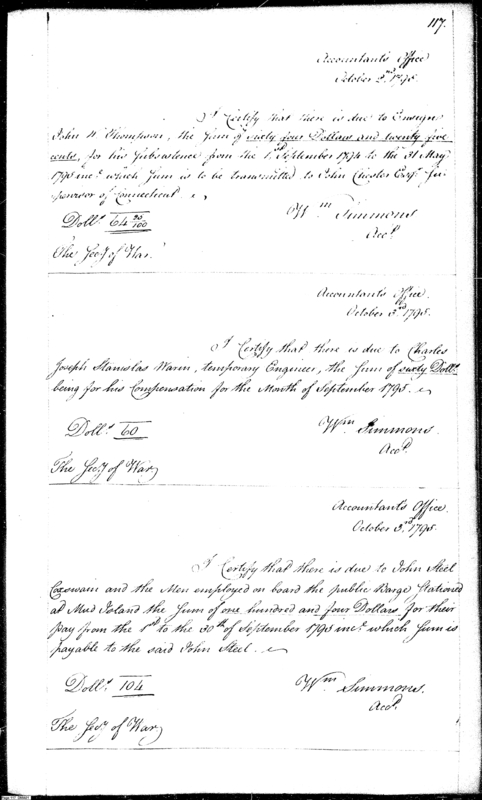 117.
Accountant's Office
October 3rd 1795.
I Certify that there is due to Ensign
John H Thompson, the Sum of sixty four Dollars and twenty five
cents, for his Subsistence from the 1st September 1794 to the 31 May
1795 incl. which Sum is to be transmitted to John Chester Esqr. Su-
pervisor of Connecticut.
Doll.s 64 25/100
Wm Simmons
Acct.
The Secy of War
Accountant's Office.
October 3rd 1795.
I Certify that there is due to Charles
Joseph Stanislas Warin, temporary Engineer, the Sum of sixty Doll.s
being for his Compensation for the Month of September 1795.
Doll.s 60
Wm Simmons.
Acct.
The Secy of War
Accountant's Office.
October 3rd 1795.
I Certify that there is due to John Steel
Coxswain and the Men employed on board the public Barge Stationed
at Mud Island the Sum of one hundred and four Dollars for their
pay from the 1st to the 30th of September 1795 incl. which Sum is
payable to the said John Steel.
Doll.s 104
Wm Simmons.
Acct.
The Secy of War